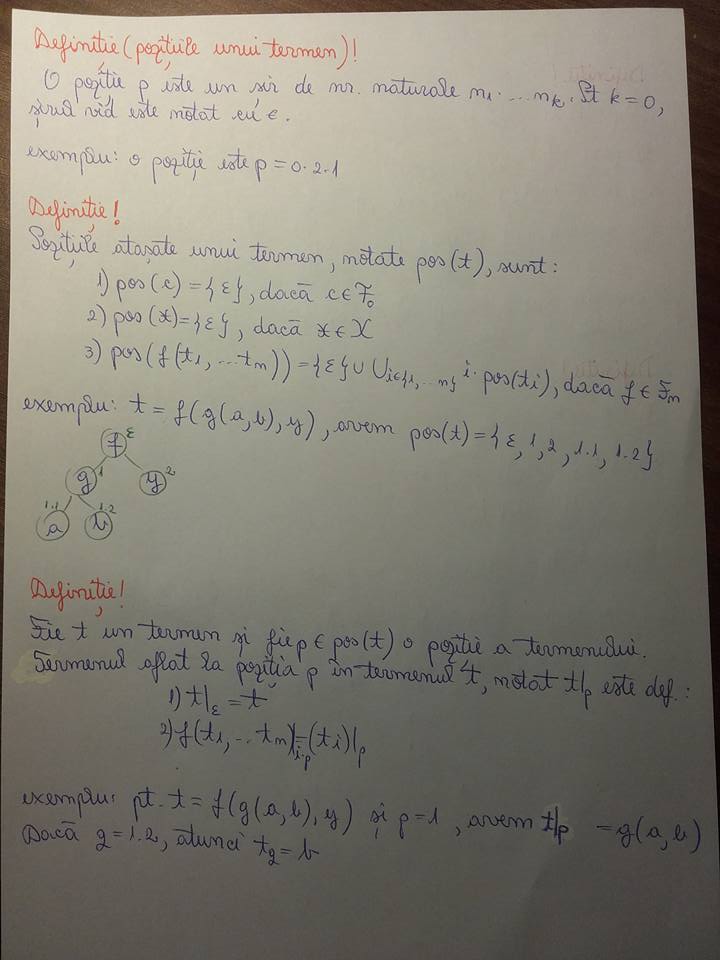 Definiție (pozițiile unui termen)!
O poziție p este un șir de nr. naturale n₁. ... nₖ. Pt k=0,
șirul vid este notat cu ε.
exemplu: o poziție este p = 0.2.1
Definiție!
Pozițiile atașate unui termen, notate pos(t), sunt:
1) pos(c) = {ε}, dacă c ∈ F₀
2) pos(x) = {ε}, dacă x ∈ X
3) pos(f(t₁, ... tₙ)) = {ε} ∪ ⋃ᵢ∈{1, ... n} i. pos(tᵢ), dacă f ∈ Fₙ
exemplu: t = f(g(a,b),y), avem pos(t) = {ε, 1, 2, 1.1, 1.2}
f ε
g 1 y 2
1.1 1.2
a b
Definiție!
Fie t un termen și fie p ∈ pos(t) o poziție a termenului.
Termenul aflat la poziția p în termenul t, notat t|p este def.:
1) t|ε = t
2) f(t₁, ... tₙ)|i.p = (ti)|p
exemplu: pt. t = f(g(a,b),y) și p=1, avem t|p = g(a,b)
Dacă g=1.2, atunci tg = b